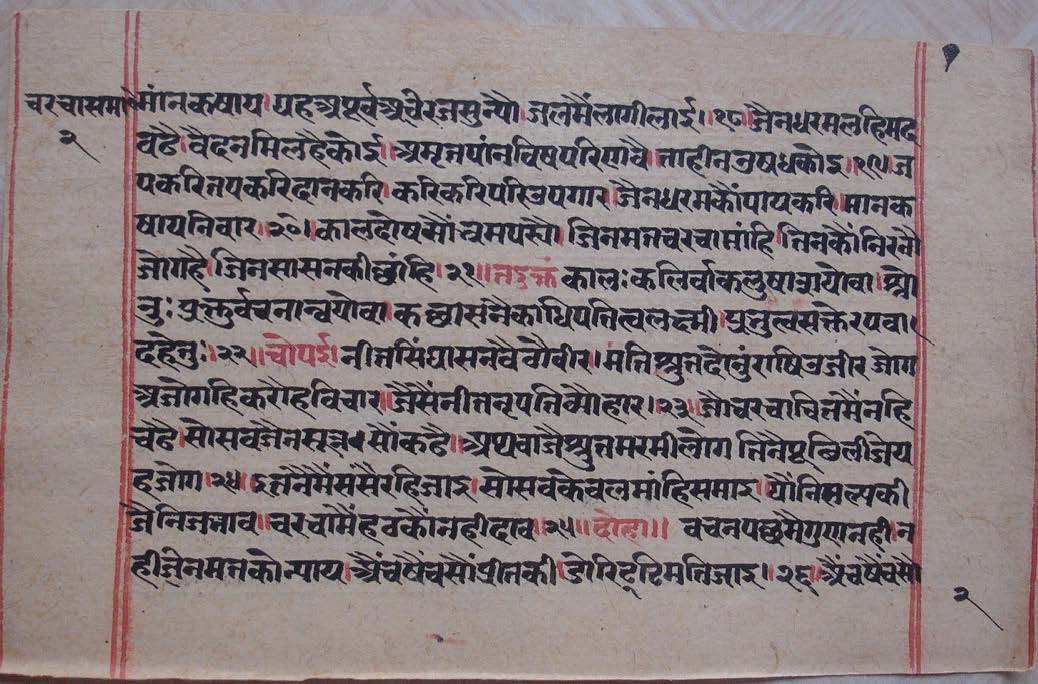 चरचासमा॰
२
मांनकषाय। यहअपूर्वअचिरजसुन्यौ। जलमैंलागीलाई।।१८। जैनधरमलहिमद
वढै। वैदनमिलहैकोई। अमृतपांनविषपरिणवै। ताहीनउषधकोइ।१९। ज
पकरितपकरिदानकरि। करिकरिपरिउपगार। जैनधरमकौंपायकरि। मानक
षायनिवार।२०। कालदोषसौं जिनमतचरचामांहि। तिनकौंनिरनौ
जोगहै। जिनसासनकीछांहि।२१।। तदुक्तं कालः कलिर्वाकलुषाशयोवा। श्रो
तुः प्रवक्तुर्वचनान्वयोवा। कछासनैकाधिपतित्वलक्ष्मी। प्रभुत्वसक्तेरपवा।
दहेतुः।२२।। चौपई। नीतसिंघासनवैठौवीर। मतिश्रुतदोनुंराषिउजीर जोग
अजोगहिकरौहविचार। जैसैंनीतनृपतिव्यौहार।२३। जोचरचाचितमैंनहि
चढै। सोसवजैनसूत्रसौंकढै। अथवाजेश्रुतमरमीलोग तिनैपूछिलीजेय
हजोग।२४। इतनैमैंसंसैरहिजाइ। सोसवकेवलमांहिसमाइ। यौंनिसल्पकी
जैनिजभाव। चरचामैंहवकौंनहीदाव।२५।। दोहा।। वचनपछमैगुणनही। न
हीजिनमतकोन्याय। अैंचषैंचसौंप्रीतकी। डोरिटूटिमतिजाइ।।२६। अैंचषैंचसौ
२